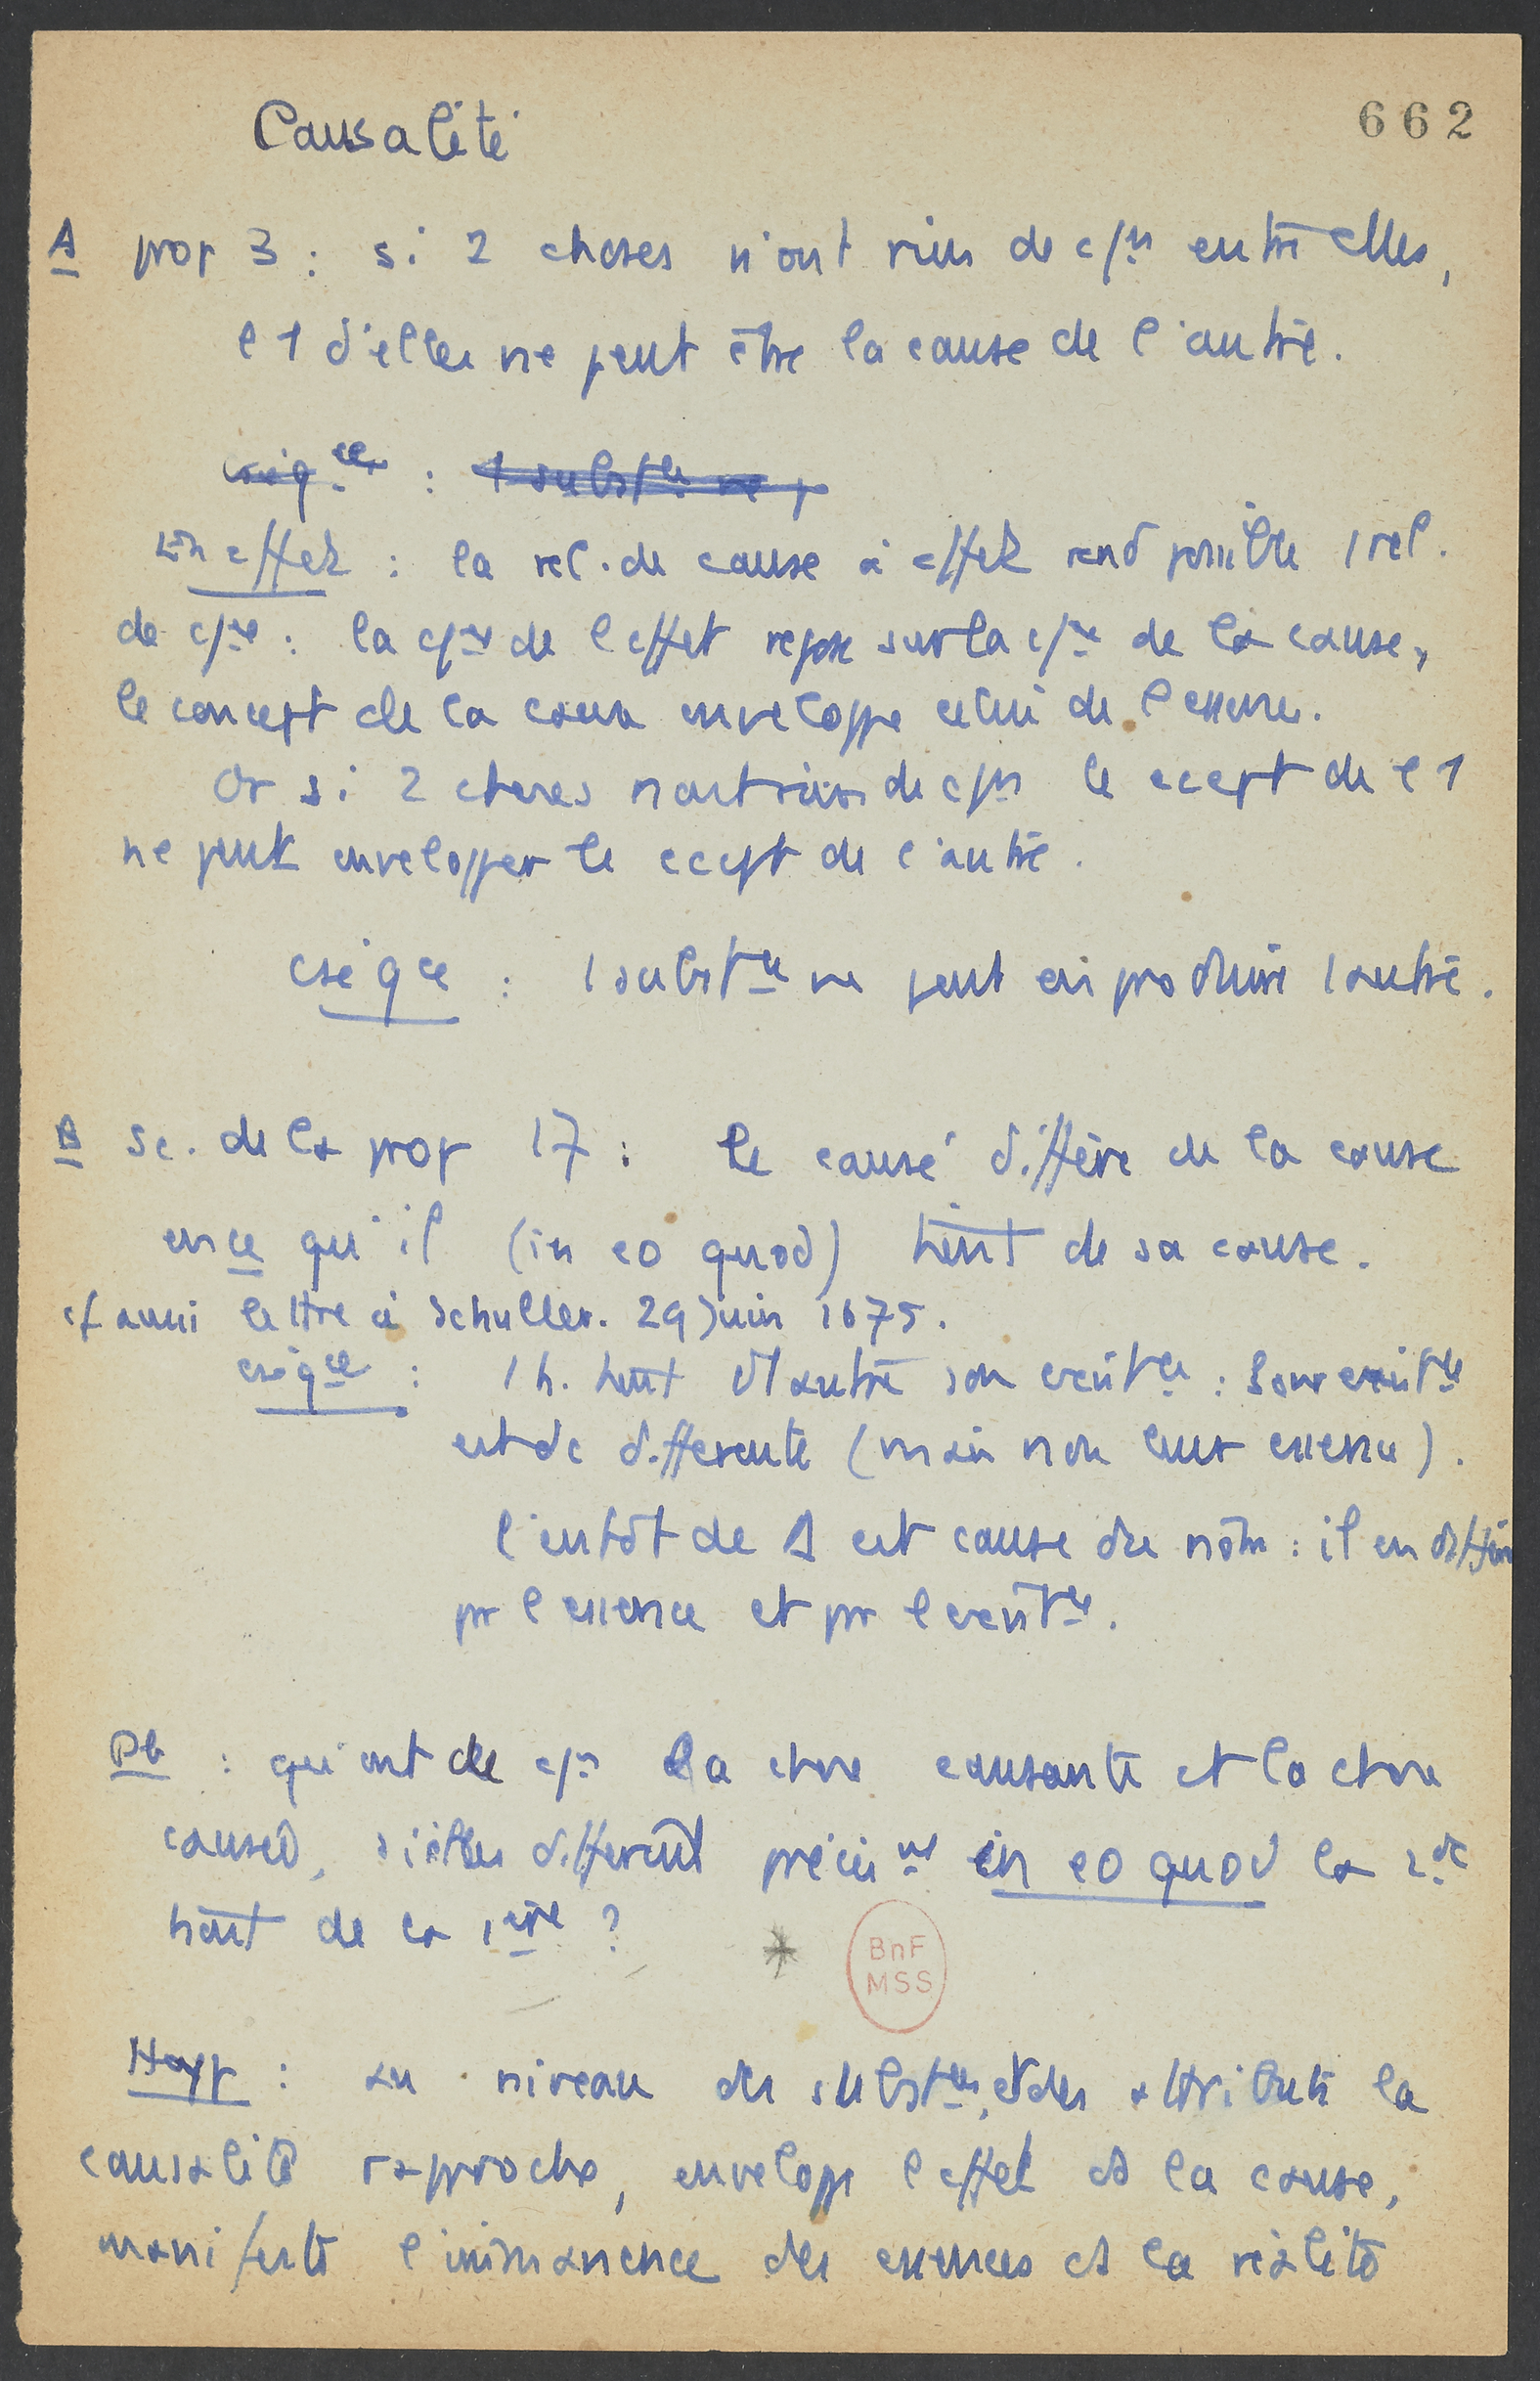 Causalité
662
A prop 3 : si 2 choses n'ont rien de c/n entre elles,
l 1 d'elles ne peut être la cause de l'autre.
cséqce : 1 substce ne p
En effet : la rel. de cause à effet rend possible 1 rel.
de c/ce : la c/ce de l effet repose sur la c/ce de la cause,
le concept de la cause enveloppe celui de l essence.
Or si 2 choses n'ont rien de c/n le ccept de l 1
ne peut envelopper le ccept de l'autre.
cséqce : 1 substce ne peut en produire 1 autre.
B Sc. de la prop 17 : le causé diffère de la cause
en ce qu'il (in eo quod) tient de sa cause.
cf aussi lettre à Schuller. 29 Juin 1675.
cséqce : 1 h. tient d'1 autre son existce : Leur existce
est dc differente (mais non leur essence).
l'entdt de A est cause du nôtre : il en diffère
pr l essence et pr l existce.
Pb : qu'ont de c/n la chose causante et la chose
causée, si elles différent précismt in eo quod la 2de
tient de la 1ère ?
BnF
MSS
Hoyp : au niveau des substces, et des attributs la
causalité rapproche, enveloppe l effet ds la cause,
manifeste l'immanence des essences ds la réalité